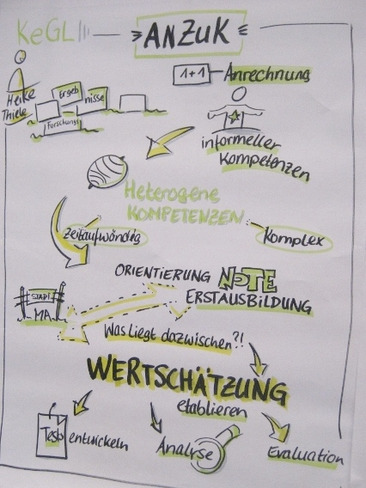 KeGL
ANZUK
1+1 Anrechnung
Heike
Thiele
Ergeb
nisse
Forschungs
informeller
Kompetenzen
Heterogene
KOMPETENZEN
zeitaufwändig
Komplex
ORIENTIERUNG NOTE
ERSTAUSBILDUNG
START
MA
Was liegt dazwischen?!
WERTSCHÄTZUNG
etablieren
Tests entwickeln
Analyse
Evaluation